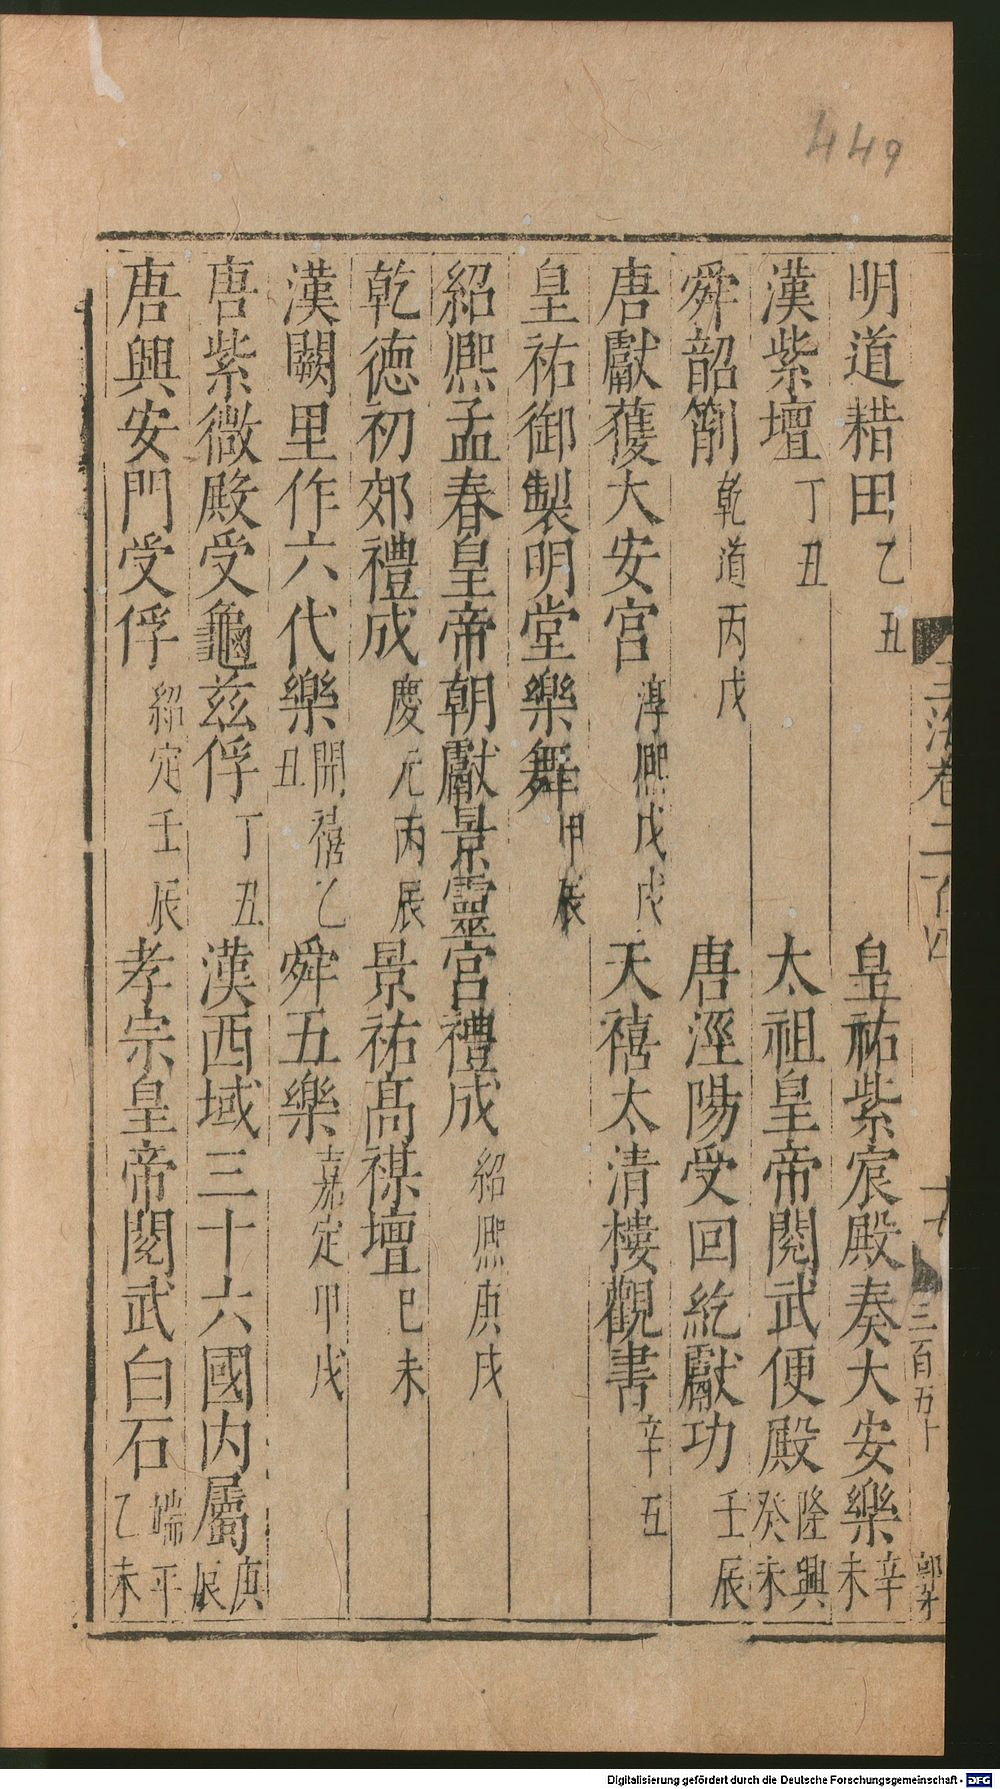 449
明道耤田乙丑 皇祐紫宸殿奏大安樂辛未
漢紫壇丁丑 太祖皇帝閱武便殿隆興癸未
舜韶箾乾道丙戌 唐涇陽受回紇獻功壬辰
唐獻獲大安宮淳熙戊戌 天禧太清樓觀書辛丑
皇祐御製明堂樂舞甲辰
紹熙孟春皇帝朝獻景靈宮禮成紹熙庚戌
乾德初郊禮成慶元丙辰 景祐高禖壇己未
漢闕里作六代樂開禧乙丑 舜五樂嘉定甲戌
唐紫微殿受龜茲俘丁丑 漢西域三十六國內屬庚辰
唐興安門受俘紹定壬辰 孝宗皇帝閱武白石端平乙未
玉海卷二百四 十七 三百五十
Digitalisierung gefördert durch die Deutsche Forschungsgemeinschaft - DFG